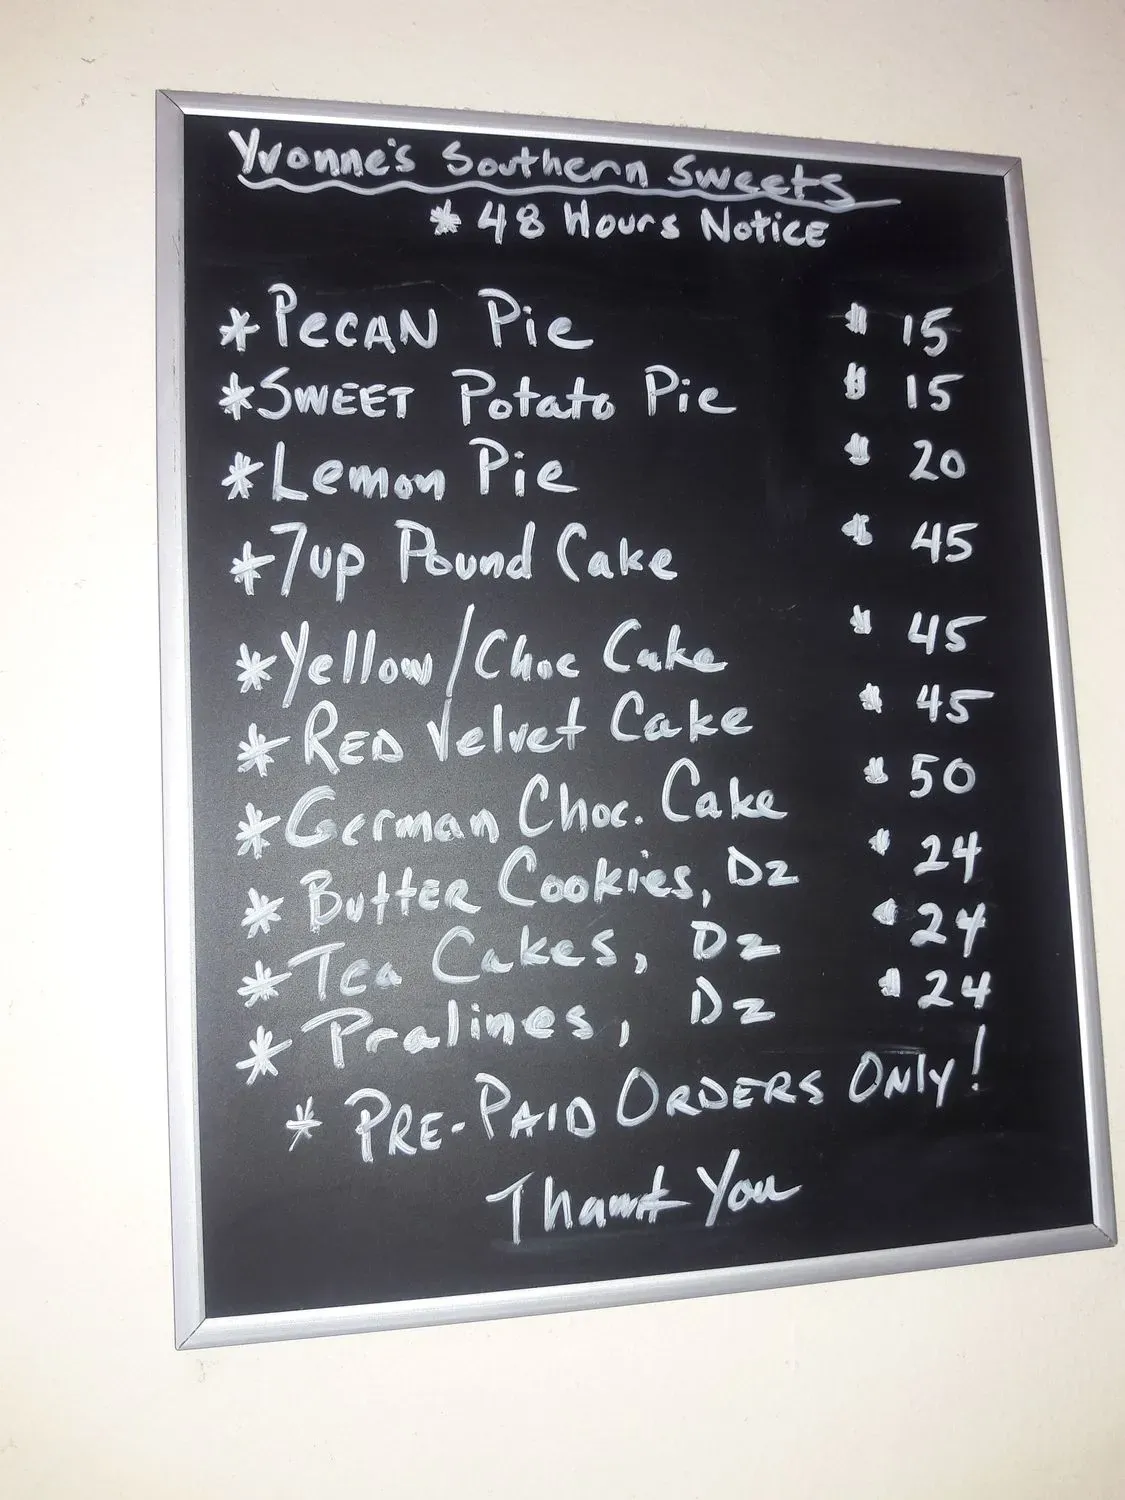 Yvonne's Southern Sweets
* 48 Hours Notice
* Pecan Pie $ 15
* Sweet Potato Pie $ 15
* Lemon Pie $ 20
* 7up Pound Cake $ 45
* Yellow/Choc Cake $ 45
* Red Velvet Cake $ 45
* German Choc. Cake $ 50
* Butter Cookies, Dz $ 24
* Tea Cakes, Dz $ 24
* Pralines, Dz $ 24
* Pre-Paid Orders Only!
Thank You